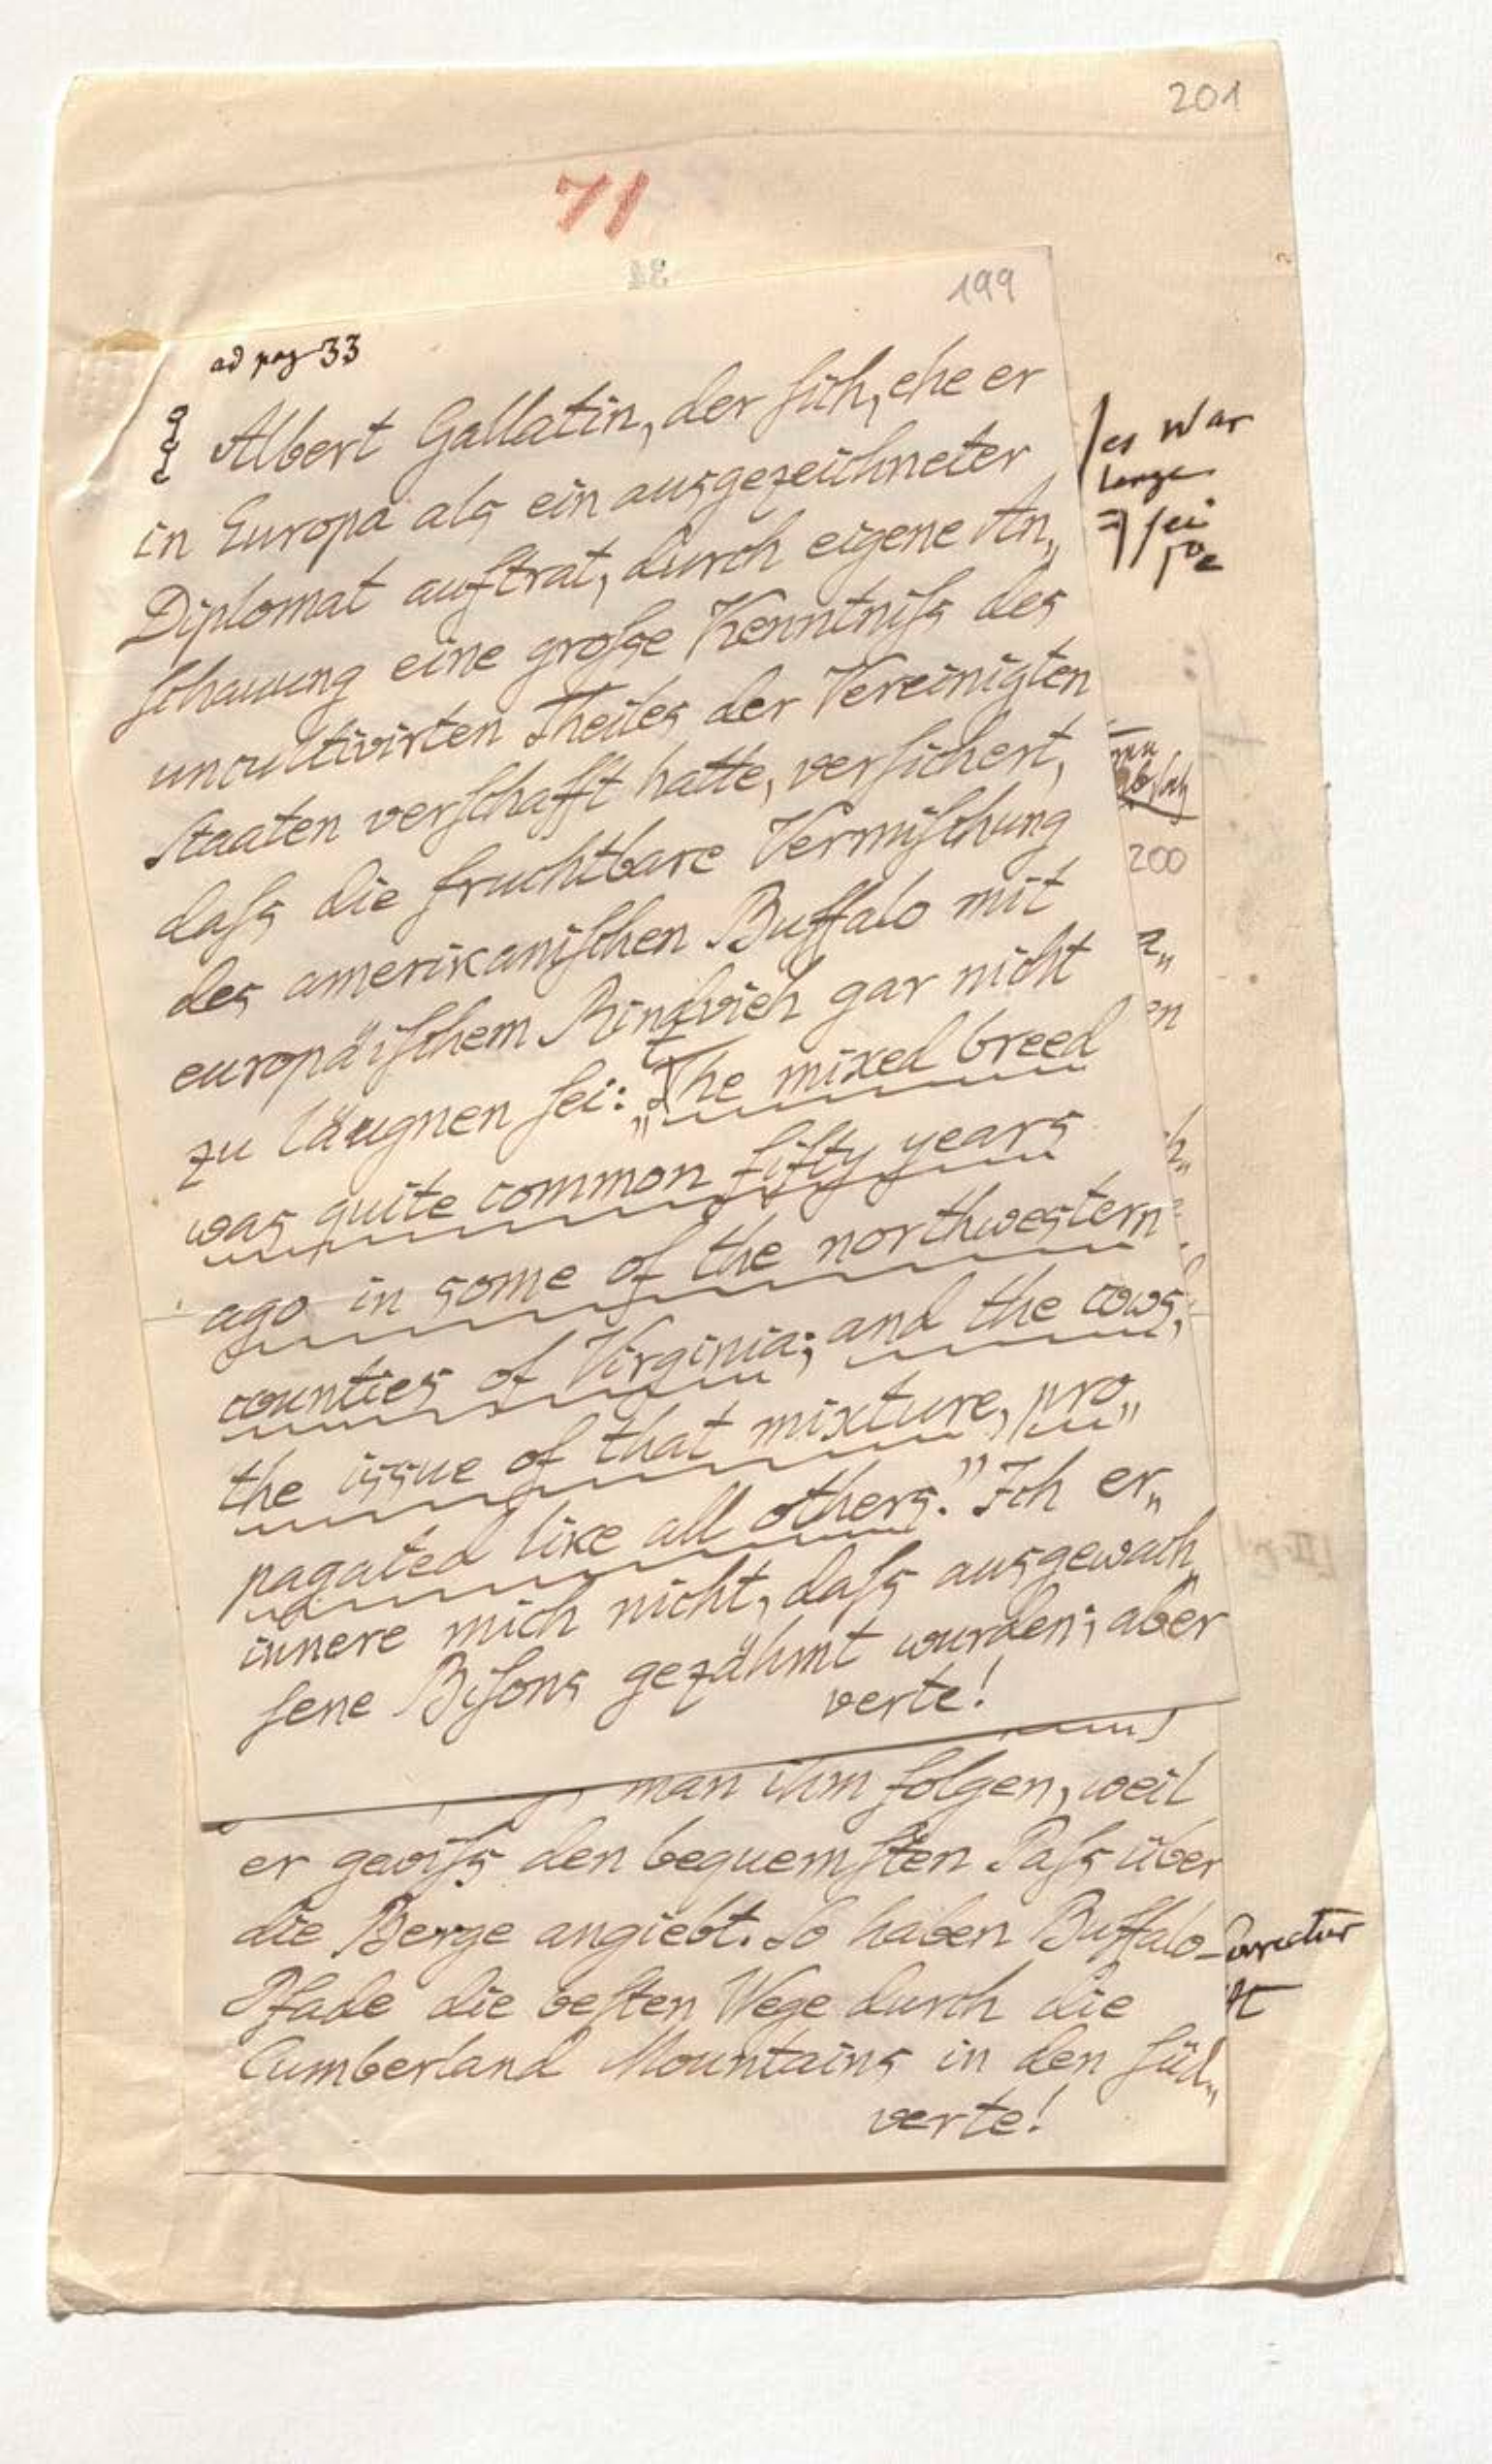 201
71
199
ad pag 33
Albert Gallatin, der ſich, ehe er
in Europa als ein ausgezeichneter
Diplomat auftrat, durch eigene An„
ſchauung eine groſse Kenntniſs des
uncultivirten Theiles der Vereinigten
Staaten verſchafft hatte, verſichert,
daſs die fruchtbare Vermiſchung
des amerikaniſchen Buffalo mit
europäiſchem Rindvieh gar nicht
zu läugnen ſei: „The mixed breed
was quite common fifty years
ago in some of the northwestern
counties of Virginia; and the cows,
the issue of that mixture, pro„
pagated like all others.” Ich er„
innere mich nicht, daſs ausgewach„
ſene Biſons gezähmt wurden; aber
verte!
es war
lange
200
en
man ihm folgen, weil
er gewiſs den bequemſten Paſs über
die Berge angiebt. So haben Buffalo-
Pfade die beſten Wege durch die
Cumberland Mountains in den ſüd„
verte!